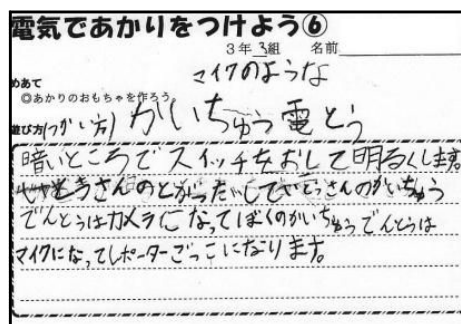 電気であかりをつけよう⑥
3年 3組 名前
マイクのような
めあて
◎あかりのおもちゃを作ろう
遊び方(つかい方) かいちゅう電とう
暗いところでスイッチをおして明るくします。
さんのとがったいしてやとうさんのかいちゅう
でんとうはカメラになってぼくのかいちゅうでんとうは
マイクになってレポーターごっこになります。